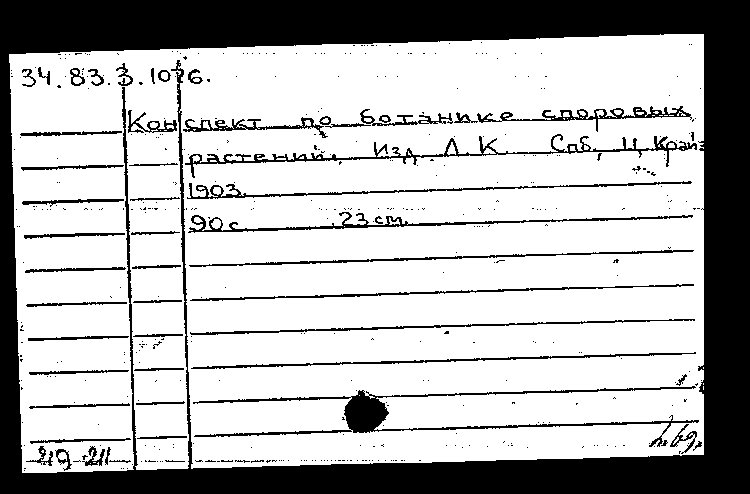 34.83.3.1076.
Конспект по ботанике споровых
растений. Изд. Л. К. Спб., Ц. Крайз
1903.
90 с. 23 см.
219-211